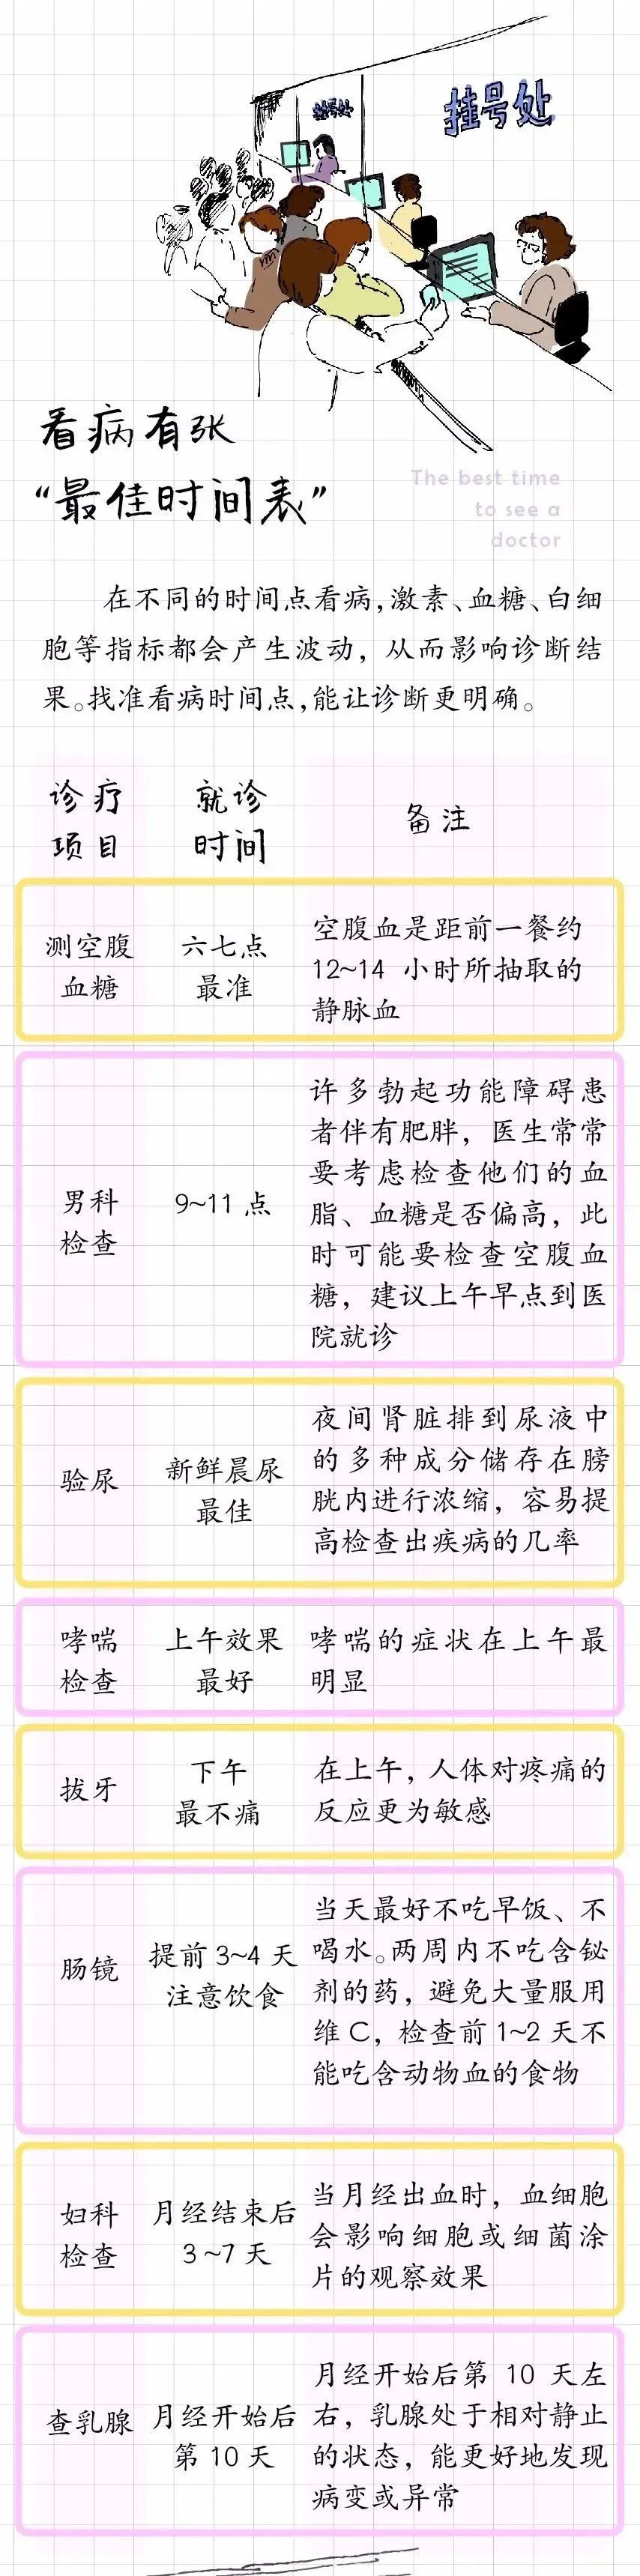 挂号处
挂号处
看病有张
“最佳时间表”
The best time
to see a
doctor
在不同的时间点看病,激素、血糖、白细
胞等指标都会产生波动，从而影响诊断结
果。找准看病时间点,能让诊断更明确。
诊疗
项目
就诊
时间
备注
测空腹
血糖
六七点
最准
空腹血是距前一餐约
12~14 小时所抽取的
静脉血
男科
检查
9~11 点
许多勃起功能障碍患
者伴有肥胖，医生常常
要考虑检查他们的血
脂、血糖是否偏高，此
时可能要检查空腹血
糖，建议上午早点到医
院就诊
验尿
新鲜晨尿
最佳
夜间肾脏排到尿液中
的多种成分储存在膀
胱内进行浓缩，容易提
高检查出疾病的几率
哮喘
检查
上午效果
最好
哮喘的症状在上午最
明显
拔牙
下午
最不痛
在上午，人体对疼痛的
反应更为敏感
肠镜
提前 3~4 天
注意饮食
当天最好不吃早饭、不
喝水。两周内不吃含铋
剂的药，避免大量服用
维 C，检查前 1~2 天不
能吃含动物血的食物
妇科
检查
月经结束后
3~7 天
当月经出血时，血细胞
会影响细胞或细菌涂
片的观察效果
查乳腺
月经开始后
第 10 天
月经开始后第 10 天左
右，乳腺处于相对静止
的状态，能更好地发现
病变或异常